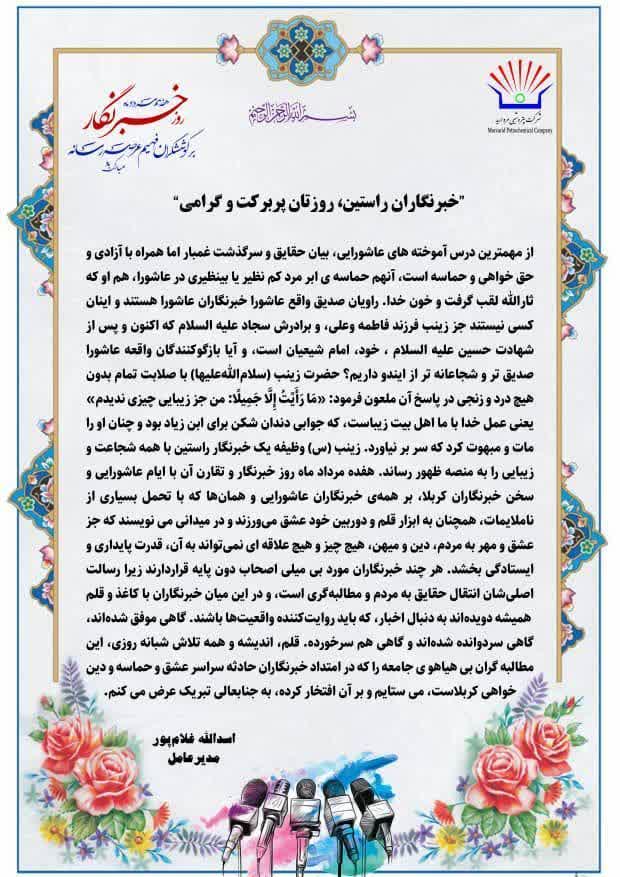 هفدهم مرداد ماه
روز خبرنگار
بر کوشندگان فهیم عرصه رسانه
مبارک باد
بسم الله الرحمن الرحیم
شرکت پتروشیمی مروارید
Morvarid Petrochemical Company
"خبرنگاران راستین، روزتان پربرکت و گرامی"
از مهمترین درس آموخته های عاشورایی، بیان حقایق و سرگذشت غمبار اما همراه با آزادی و
حق خواهی و حماسه است، آنهم حماسه ی ابر مرد کم نظیر یا بینظیری در عاشورا، هم او که
ثارالله لقب گرفت و خون خدا. راویان صدیق واقع عاشورا خبرنگاران عاشورا هستند و اینان
کسی نیستند جز زینب فرزند فاطمه وعلی، و برادرش سجاد علیه السلام که اکنون و پس از
شهادت حسین علیه السلام ، خود، امام شیعیان است، و آیا بازگوکنندگان واقعه عاشورا
صدیق تر و شجاعانه تر از ایندو داریم؟ حضرت زینب (سلام‌الله‌علیها) با صلابت تمام بدون
هیچ درد و زنجی در پاسخ آن ملعون فرمود: «مَا رَأَيْتُ إِلَّا جَمِيلًا: من جز زیبایی چیزی ندیدم»
یعنی عمل خدا با ما اهل بیت زیباست، که جوابی دندان شکن برای ابن زیاد بود و چنان او را
مات و مبهوت کرد که سر بر نیاورد. زینب (س) وظیفه یک خبرنگار راستین با همه شجاعت و
زیبایی را به منصه ظهور رساند. هفده مرداد ماه روز خبرنگار و تقارن آن با ایام عاشورایی و
سخن خبرنگاران کربلا، بر همه‌ی خبرنگاران عاشورایی و همان‌ها که با تحمل بسیاری از
ناملایمات، همچنان به ابزار قلم و دوربین خود عشق می‌ورزند و در میدانی می نویسند که جز
عشق و مهر به مردم، دین و میهن، هیچ چیز و هیچ علاقه ای نمی‌تواند به آن، قدرت پایداری و
ایستادگی بخشد. هر چند خبرنگاران مورد بی میلی اصحاب دون پایه قراردارند زیرا رسالت
اصلی‌شان انتقال حقایق به مردم و مطالبه‌گری است، و در این میان خبرنگاران با کاغذ و قلم
همیشه دویده‌اند به دنبال اخبار، که باید روایت‌کننده واقعیت‌ها باشند. گاهی موفق شده‌اند،
گاهی سردوانده شده‌اند و گاهی هم سرخورده. قلم، اندیشه و همه تلاش شبانه روزی، این
مطالبه گران بی هیاهو ی جامعه را که در امتداد خبرنگاران حادثه سراسر عشق و حماسه و دین
خواهی کربلاست، می ستایم و بر آن افتخار کرده، به جنابعالی تبریک عرض می کنم.
اسدالله غلام‌پور
مدیرعامل